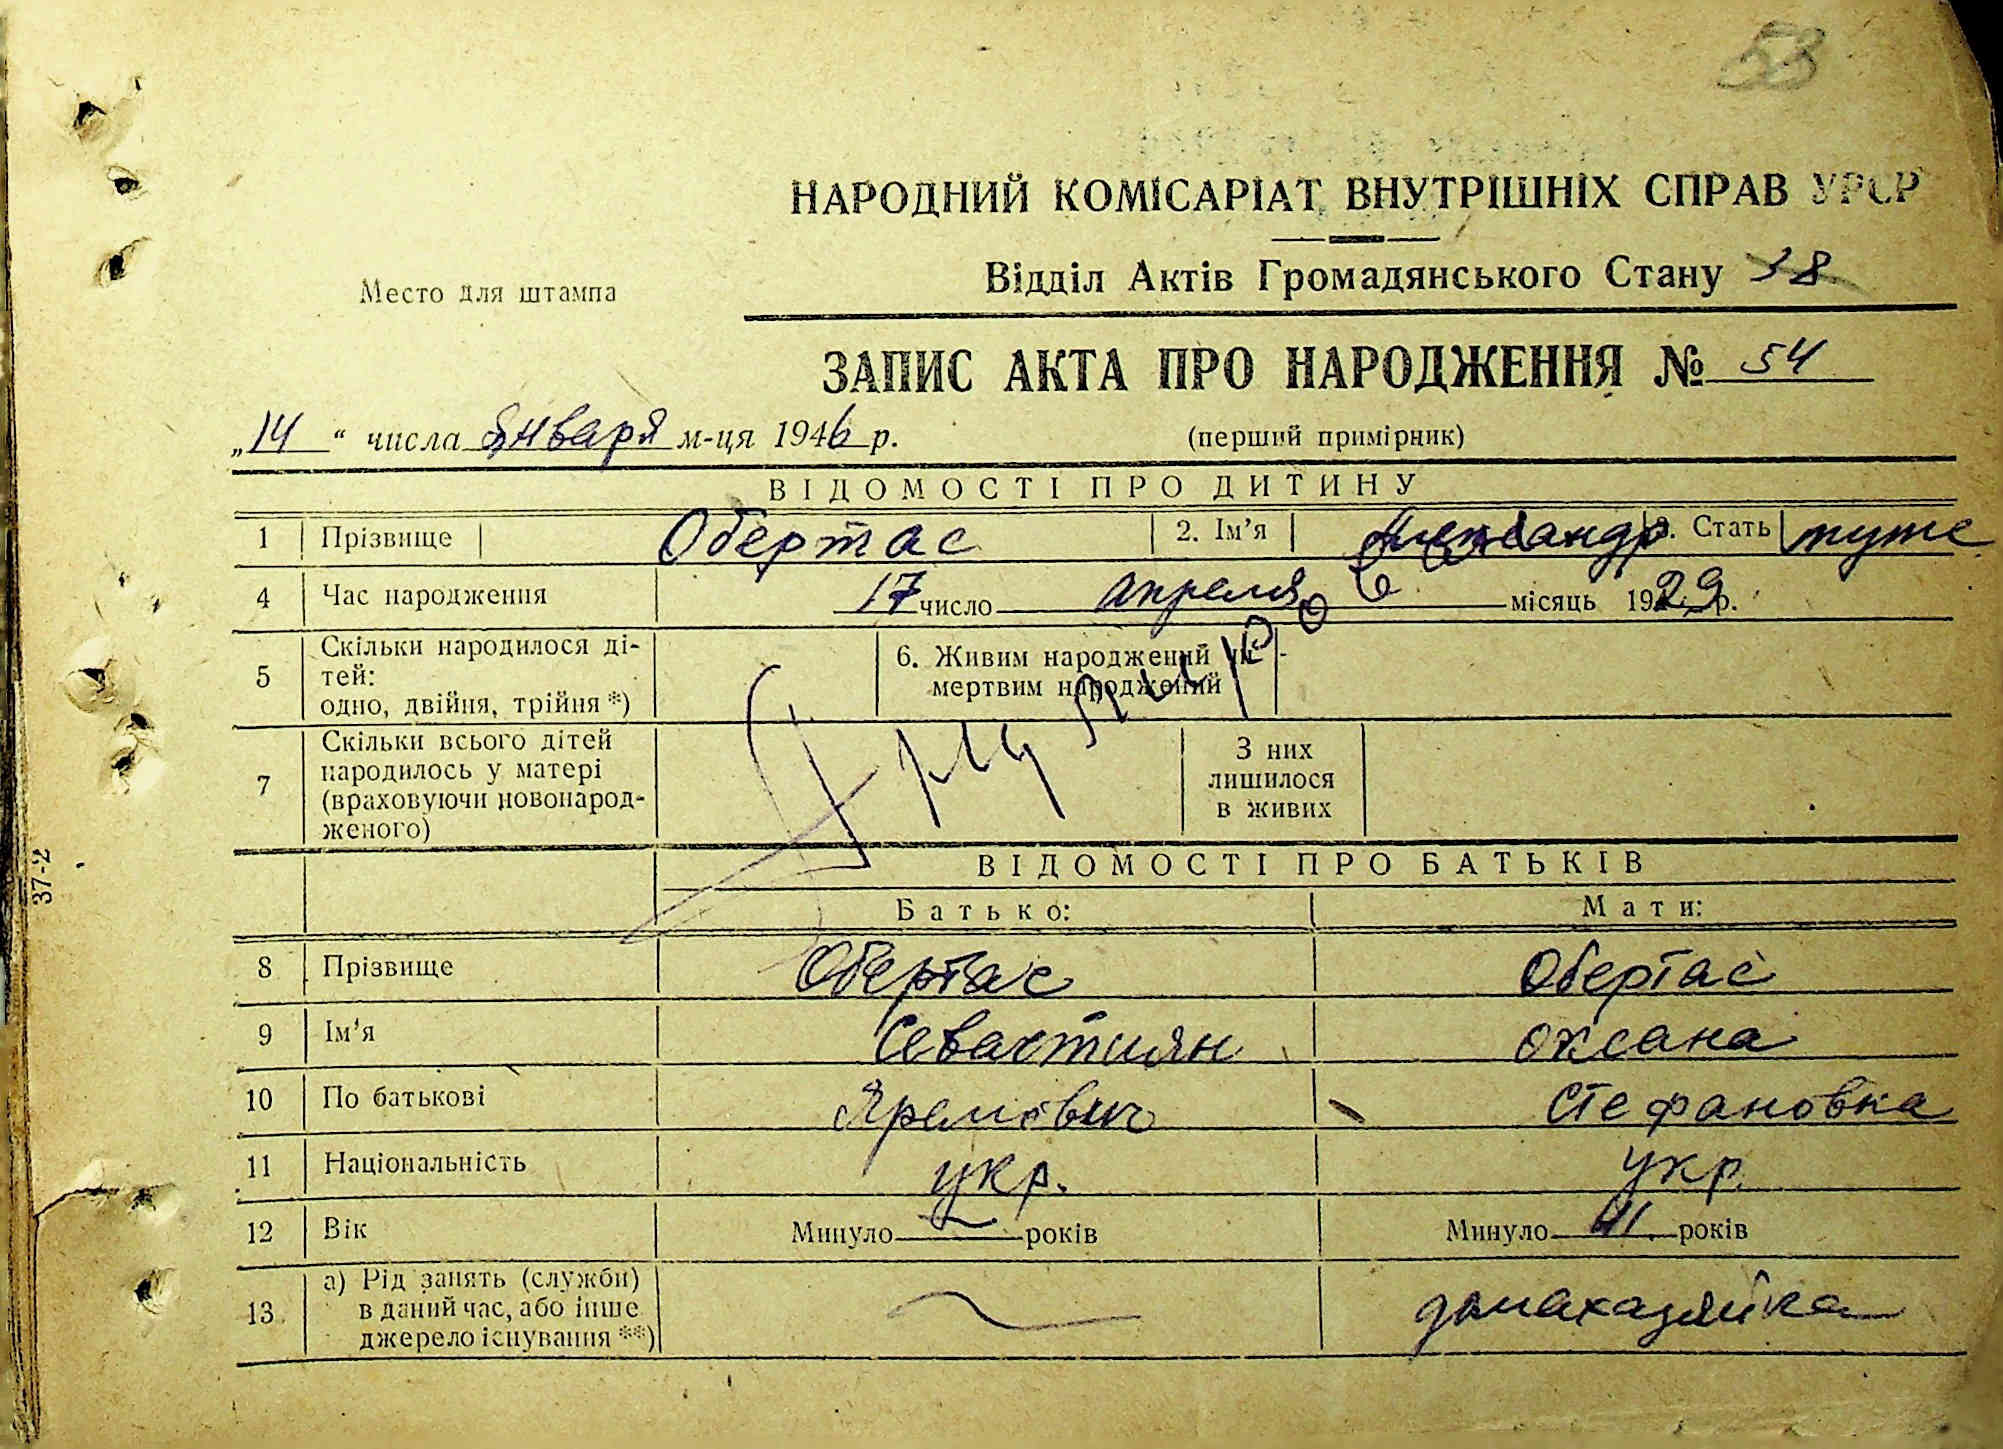 53
НАРОДНИЙ КОМІСАРІАТ ВНУТРІШНІХ СПРАВ УРСР
Место для штампа
Відділ Актів Громадянського Стану 38
ЗАПИС АКТА ПРО НАРОДЖЕННЯ № 54
„14“ числа января м-ця 1946 р. (перший примірник)
ВІДОМОСТІ ПРО ДИТИНУ
1 Прізвище Обертас 2. Ім’я Александр 3. Стать муже
4 Час народження 17 число апреля місяць 1929 р.
5 Скільки народилося ді-
тей:
одно, двійня, трійня *)
6. Живим народжений чи
мертвим народжений
7 Скільки всього дітей
народилось у матері
(враховуючи новонарод-
женого)
З них
лишилося
в живих
37-2
ВІДОМОСТІ ПРО БАТЬКІВ
Батько: Мати:
8 Прізвище Обертас Обертас
9 Ім’я Севастиян Оксана
10 По батькові Яремович Стефановна
11 Національність укр. укр.
12 Вік Минуло років Минуло 41 років
13 а) Рід занять (служби)
в даний час, або інше
джерело існування **)
домахазяйка